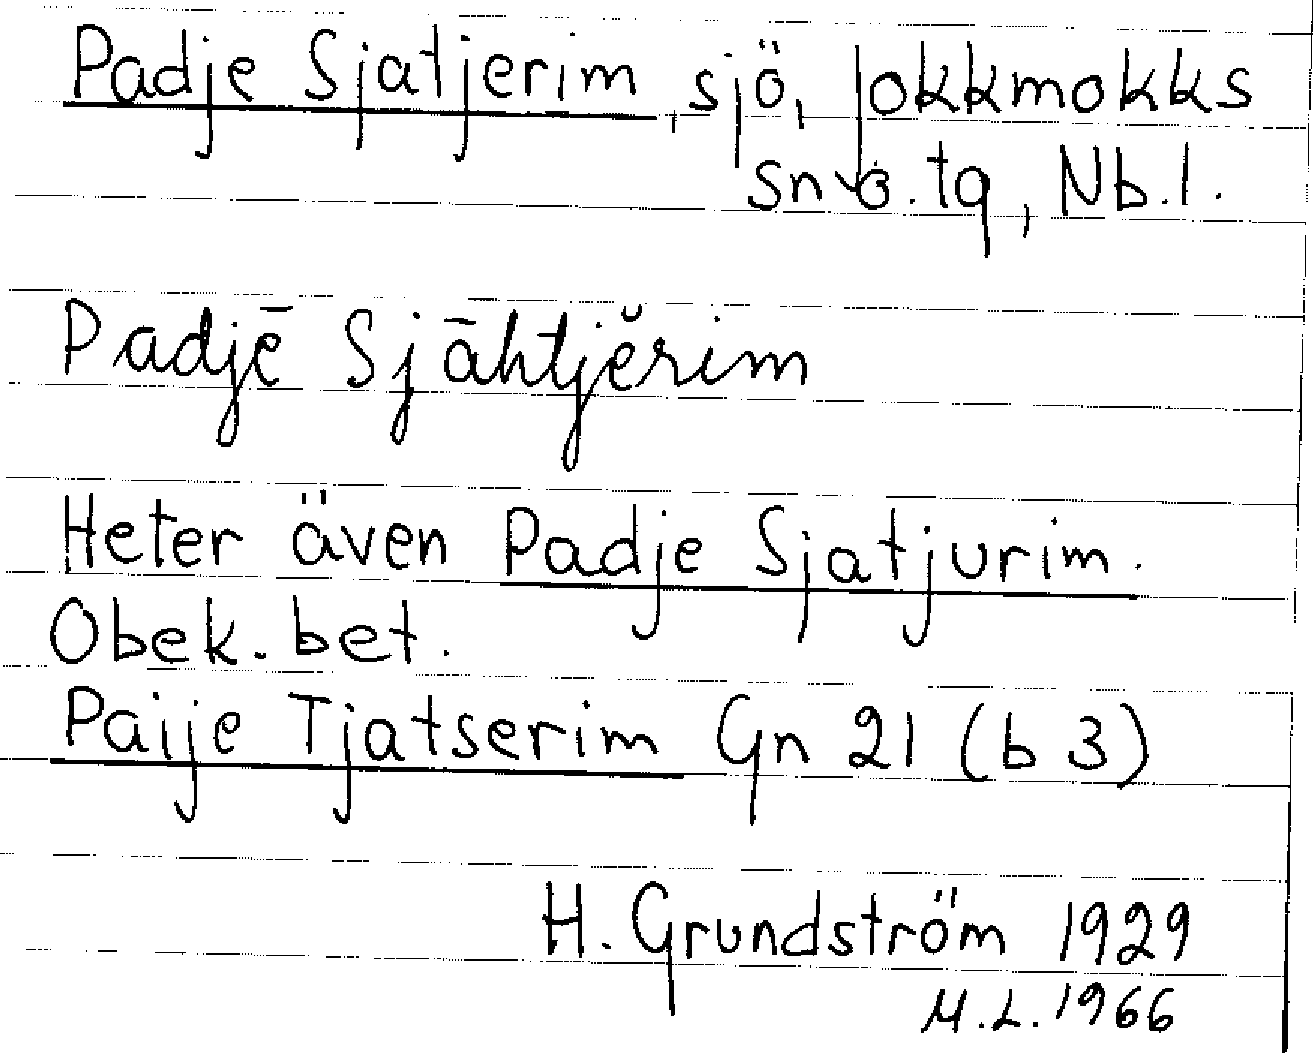 Padje Sjatjerim, sjö, Jokkmokks
sn o. tg, Nb. l.
Padjē Sjāhtjĕrim
Heter även Padje Sjatjurim.
Obek. bet.
Paije Tjatserim Gn 21 (b 3)
H. Grundström 1929
M.L. 1966